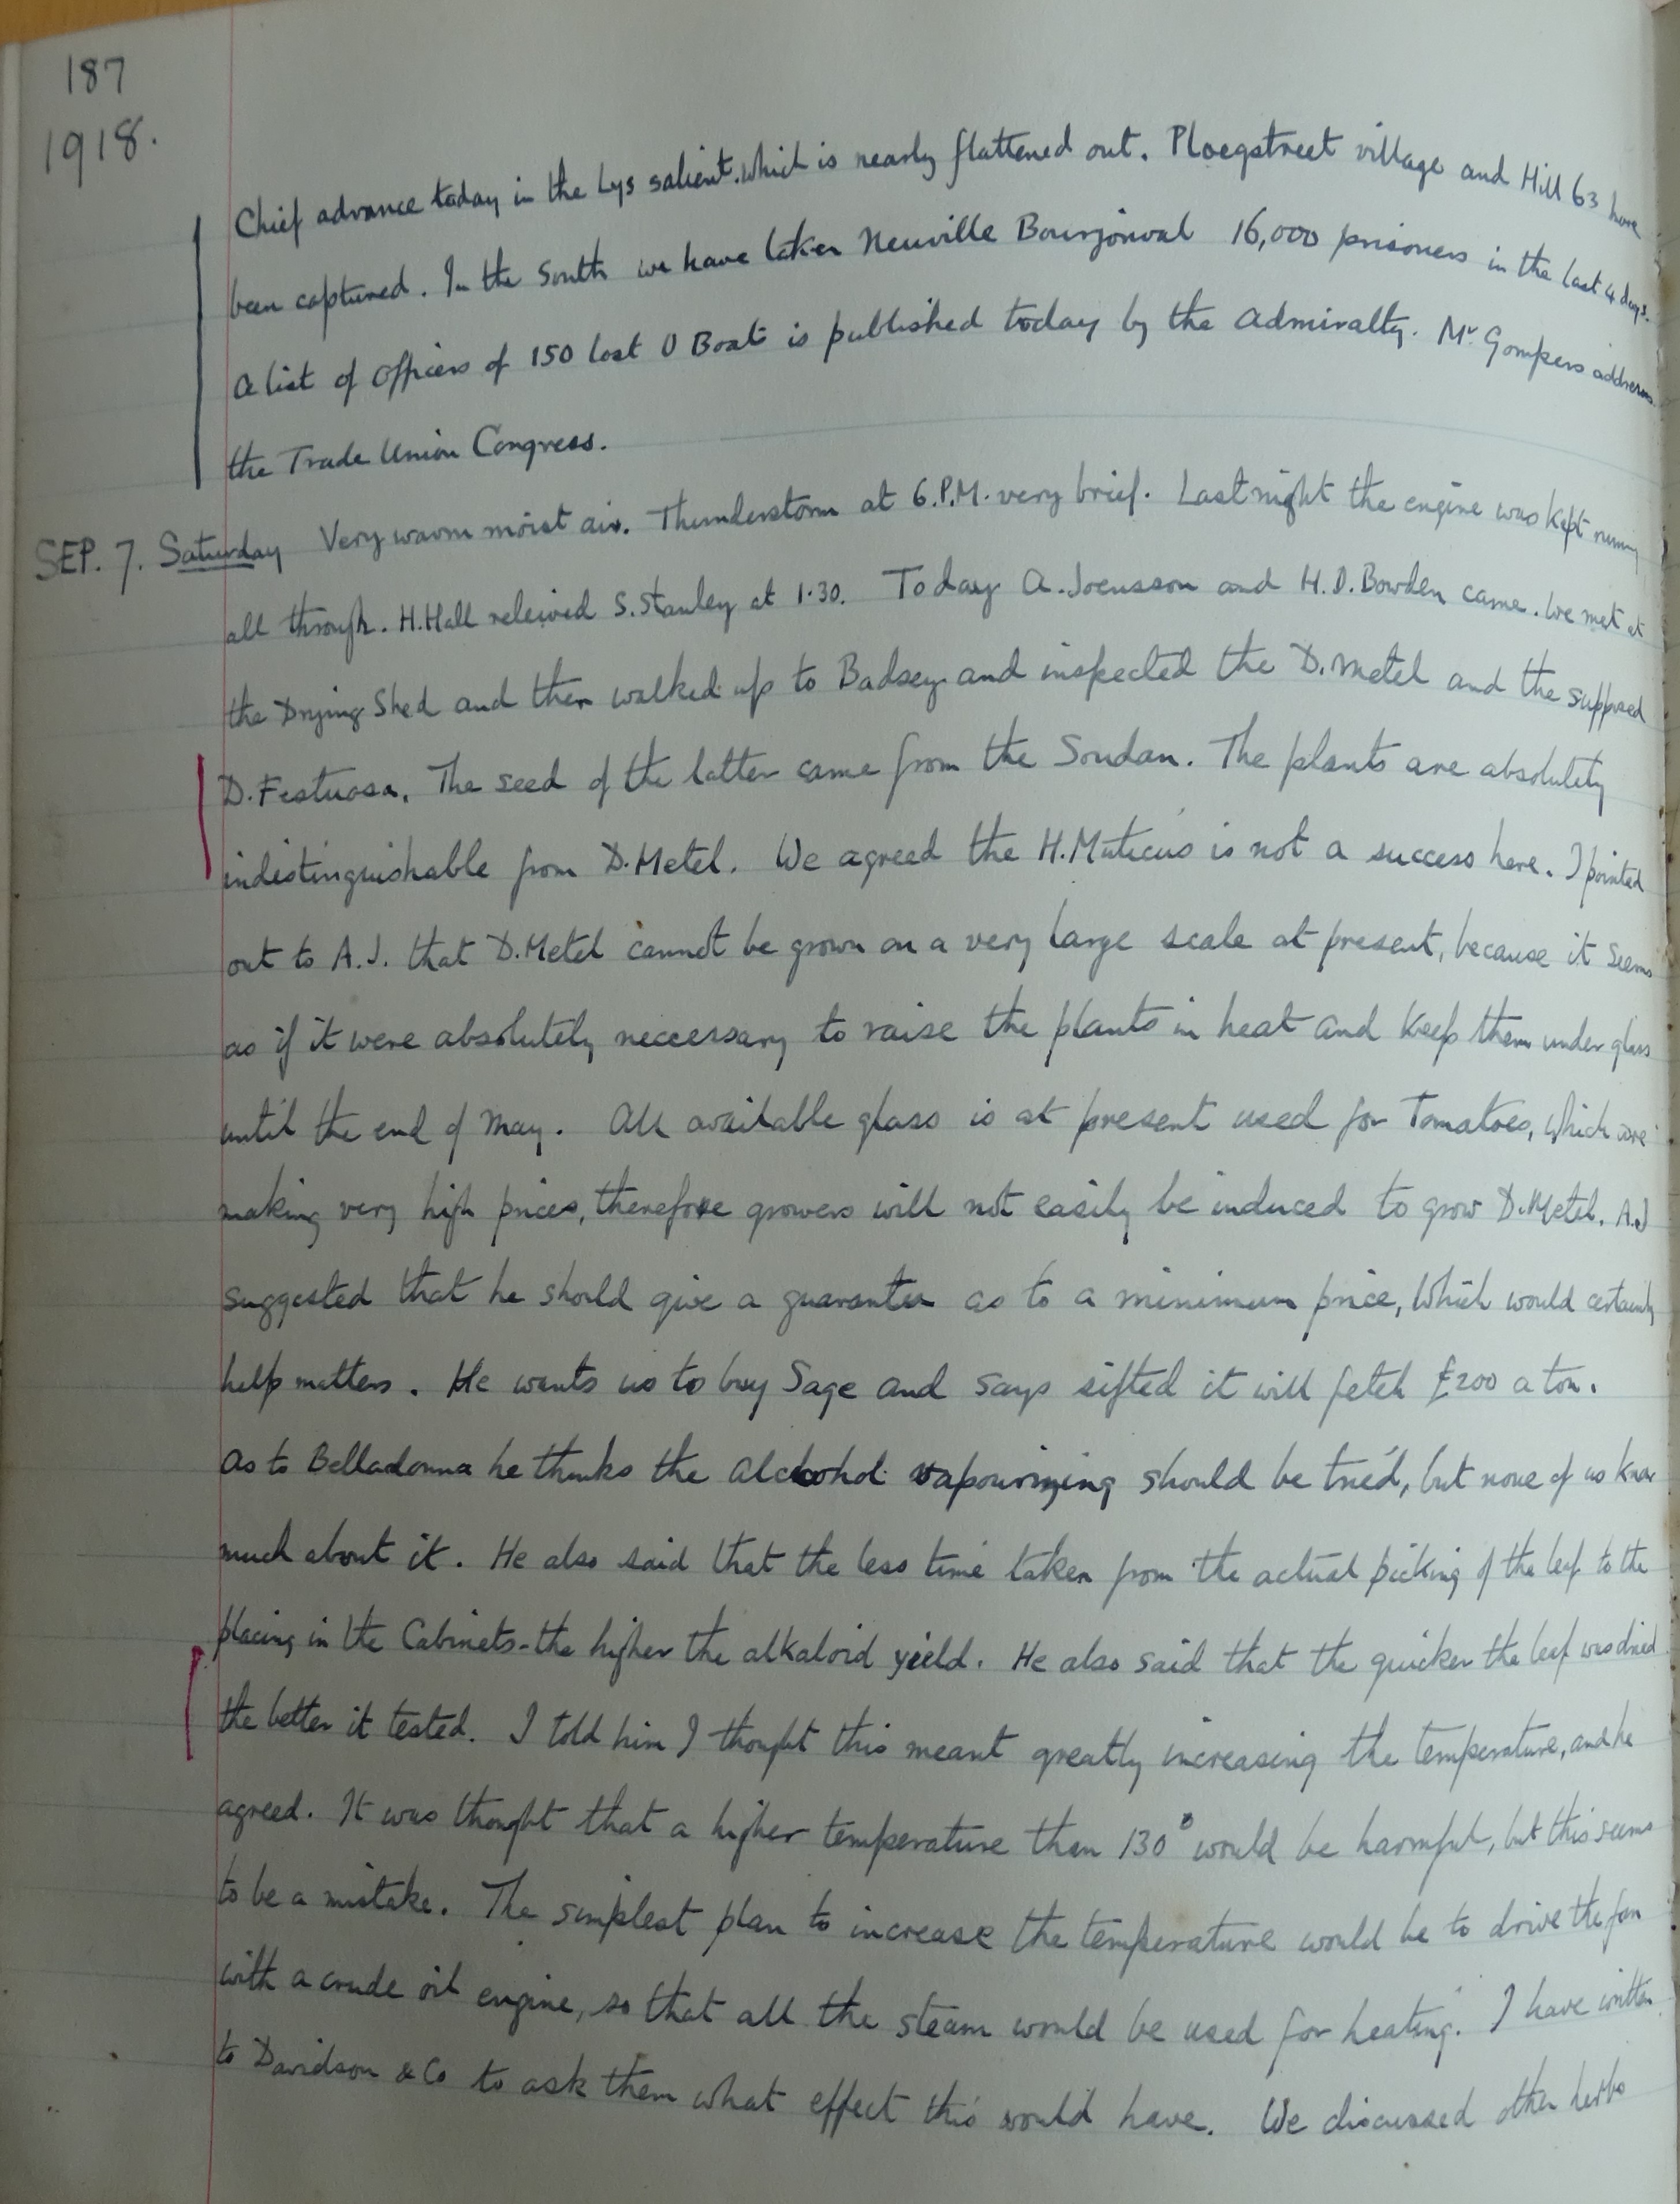 187
1918.
Chief advance today in the Lys salient. which is nearly flattened out. Ploegstreet village and Hill 63 have
been captured. In the South we have taken Neuville Bourjonval 16,000 prisoners in the last 4 days.
A list of officers of 150 lost U Boats is published today by the Admiralty. Mr. Gompers addresses
the Trade Union Congress.
SEP. 7. Saturday Very warm moist air. Thunderstorm at 6.P.M. very brief. Last night the engine was kept running
all through. H. Hall releived S. Stanley at 1.30. Today A. Joensson and H.D. Bowden came. We met at
the Drying Shed and then walked up to Badsey and inspected the D. Metel and the supposed
D. Festuosa. The seed of the latter came from the Soudan. The plants are absolutely
indistinguishable from D. Metel. We agreed the H. Muticus is not a success here. I pointed
out to A.J. that D. Metel cannot be grown on a very large scale at present, because it seems
as if it were absolutely neccessary to raise the plants in heat and keep them under glass
until the end of May. All available glass is at present used for Tomatoes, which are
making very high prices, therefore growers will not easily be induced to grow D. Metel. A.J
suggested that he should give a guarantee as to a minimum price, which would certainly
help matters. He wants us to buy Sage and says sifted it will fetch £200 a ton.
As to Belladonna he thinks the Alcohol vapourizing should be tried, but none of us know
much about it. He also said that the less time taken from the actual picking of the leaf to the
placing in the Cabinets - the higher the alkaloid yield. He also said that the quicker the leaf was dried
the better it tested. I told him I thought this meant greatly increasing the temperature, and he
agreed. It was thought that a higher temperature than 130° would be harmful, but this seems
to be a mistake. The simplest plan to increase the temperature would be to drive the fan
with a crude oil engine, so that all the steam would be used for heating. I have written
to Davidson & Co to ask them what effect this would have. We discussed other herbs